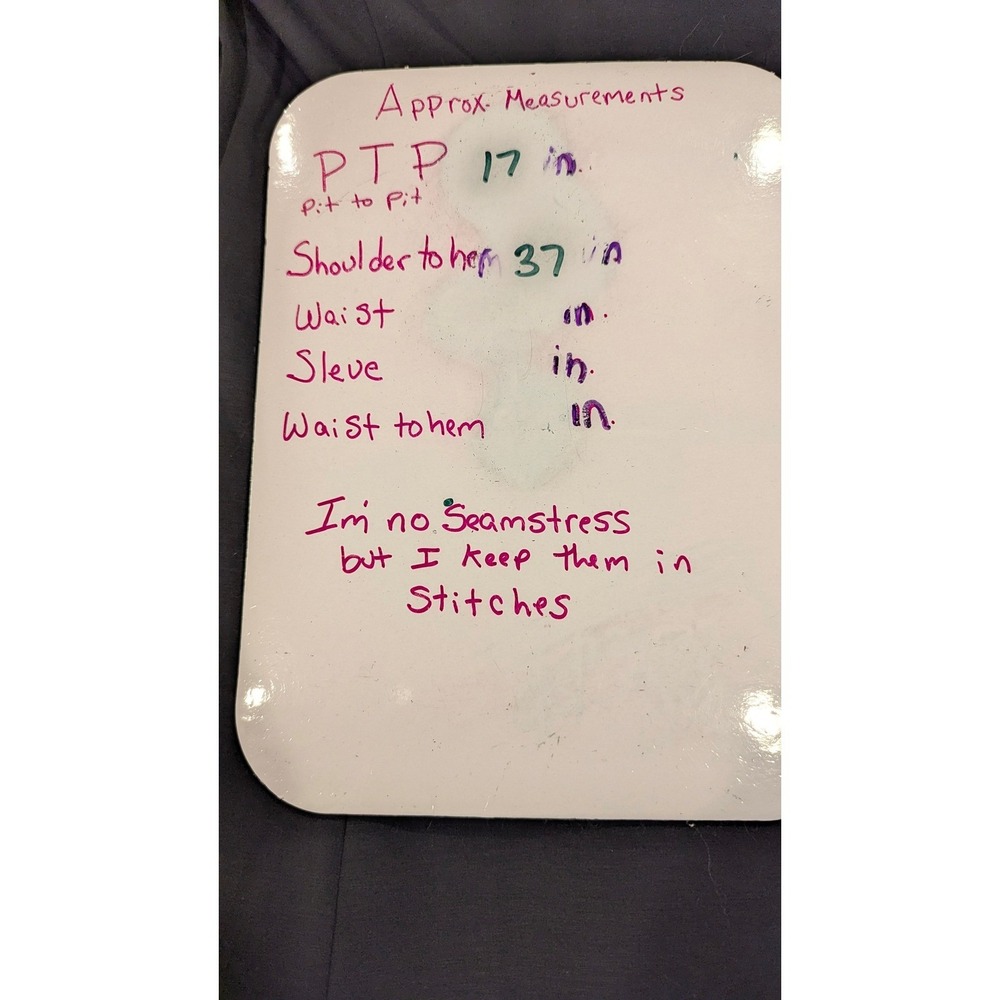 Approx. Measurements
PTP 17 in.
Pit to Pit
Shoulder to hem 37 in
Waist in.
Sleve in.
Waist to hem in.
I'm no Seamstress
but I keep them in
Stitches